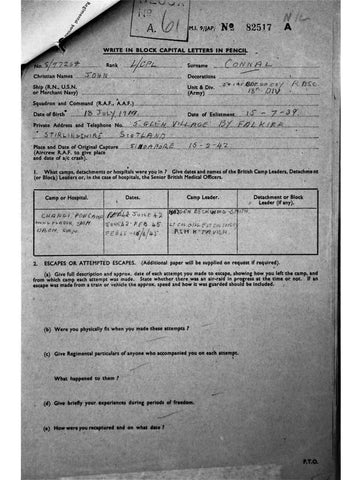 A. 61 M.I. 9/JAP/ No 82517 A
WRITE IN BLOCK CAPITAL LETTERS IN PENCIL
No. Rank L/CPL Surname CONNAL
Christian Names JOHN Decorations
Ship (R.N., U.S.N. or Merchant Navy) Unit & Div. (Army) R.A.S.C. 18TH DIV
Squadron and Command (R.A.F., A.A.F.)
Date of Birth 18 JULY Date of Enlistment 15-7-39.
Private Address and Telephone No. 5. GLEN VILLAGE BY FALKIRK
STIRLINGSHIRE SCOTLAND
Place and Date of Original Capture SINGAPORE 15-2-42
(Aircrew R.A.F. to give place
and date of a/c crash).
1. What camps, detachments or hospitals were you in? Give dates and names of the British Camp Leaders, Detachment
(or Block) Leaders or, in the case of hospitals, the Senior British Medical Officers.
Camp or Hospital. Dates. Camp Leader. Detachment or Block
Leader (if any).
CHANGI, FEB 42 JUNE 42 BECKWITH-SMITH.
JUNE 42 - FEB 45
FEB 45 - 15/8/45
2. ESCAPES OR ATTEMPTED ESCAPES. (Additional paper will be supplied on request if required).
(a) Give full description and approx. date of each attempt you made to escape, showing how you left the camp, and
from which camp each attempt was made. State whether there was an air-raid in progress at the time or not. If an
escape was made from a train or vehicle the approx. speed and how it was guarded should be included.
(b) Were you physically fit when you made these attempts?
(c) Give Regimental particulars of anyone who accompanied you on each attempt.
What happened to them?
(d) Give briefly your experiences during periods of freedom.
(e) How were you recaptured and on what date?
P.T.O.